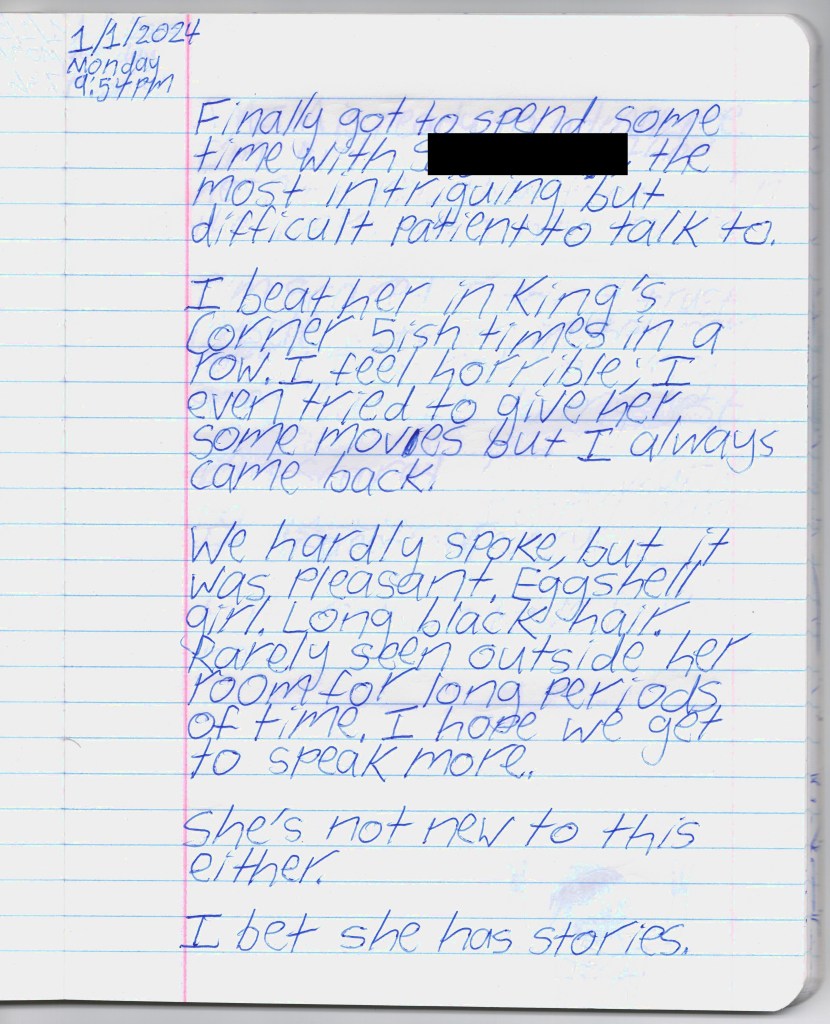 1/1/2024
Monday
9:54pm
Finally got to spend some
time with S the
most intriguing but
difficult patient to talk to.
I beat her in King's
Corner 5ish times in a
row. I feel horrible; I
even tried to give her
some movies but I always
came back.
We hardly spoke, but it
was pleasant. Eggshell
girl. Long black hair.
Rarely seen outside her
room for long periods
of time. I hope we get
to speak more.
She's not new to this
either.
I bet she has stories.